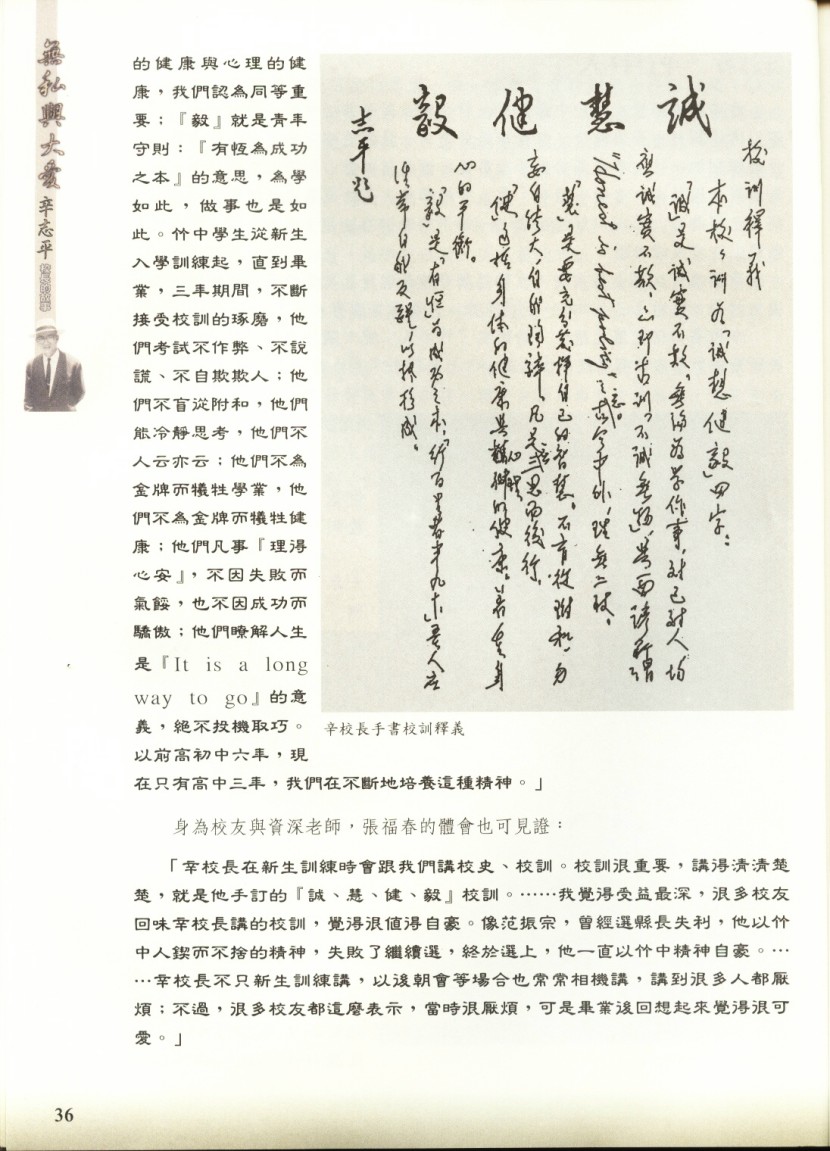 無私與大愛
辛志平
校長的故事
的健康與心理的健
康，我們認為同等重
要；『毅』就是青年
守則：『有恆為成功
之本』的意思，為學
如此，做事也是如
此。竹中學生從新生
入學訓練起，直到畢
業，三年期間，不斷
接受校訓的琢磨，他
們考試不作弊、不說
謊、不自欺欺人；他
們不盲從附和，他們
能冷靜思考，他們不
人云亦云；他們不為
金牌而犧牲學業，他
們不為金牌而犧牲健
康；他們凡事『理得
心安』，不因失敗而
氣餒，也不因成功而
驕傲；他們瞭解人生
是『It is a long
way to go』的意
義，絕不投機取巧。
以前高初中六年，現
在只有高中三年，我們在不斷地培養這種精神。」
誠 慧 健 毅
校訓釋義
本校校訓為「誠慧健毅」四字：
「誠」是誠實不欺。無論為學作事，對己對人均
應誠實不欺。亦即古訓「不誠無物」，與西諺所謂
"Honest is best policy"之意。中外，理無二致。
「慧」是要充分發揮自己的智慧。不盲從附和，勿
妄自誇大，凡是三思而後行。
「健」包括身體的健康與心理的健康。
心的平衡。
「毅」是「有恆為成功之本」，「行百里者半九十」，吾人應
志平題
辛校長手書校訓釋義
身為校友與資深老師，張福春的體會也可見證：
「辛校長在新生訓練時會跟我們講校史、校訓。校訓很重要，講得清清楚
楚，就是他手訂的『誠、慧、健、毅』校訓。……我覺得受益最深，很多校友
回味辛校長講的校訓，覺得很值得自豪。像范振宗，曾經選縣長失利，他以竹
中人鍥而不捨的精神，失敗了繼續選，終於選上，他一直以竹中精神自豪。…
…辛校長不只新生訓練講，以後朝會等場合也常常相機講，講到很多人都厭
煩；不過，很多校友都這麼表示，當時很厭煩，可是畢業後回想起來覺得很可
愛。」
36